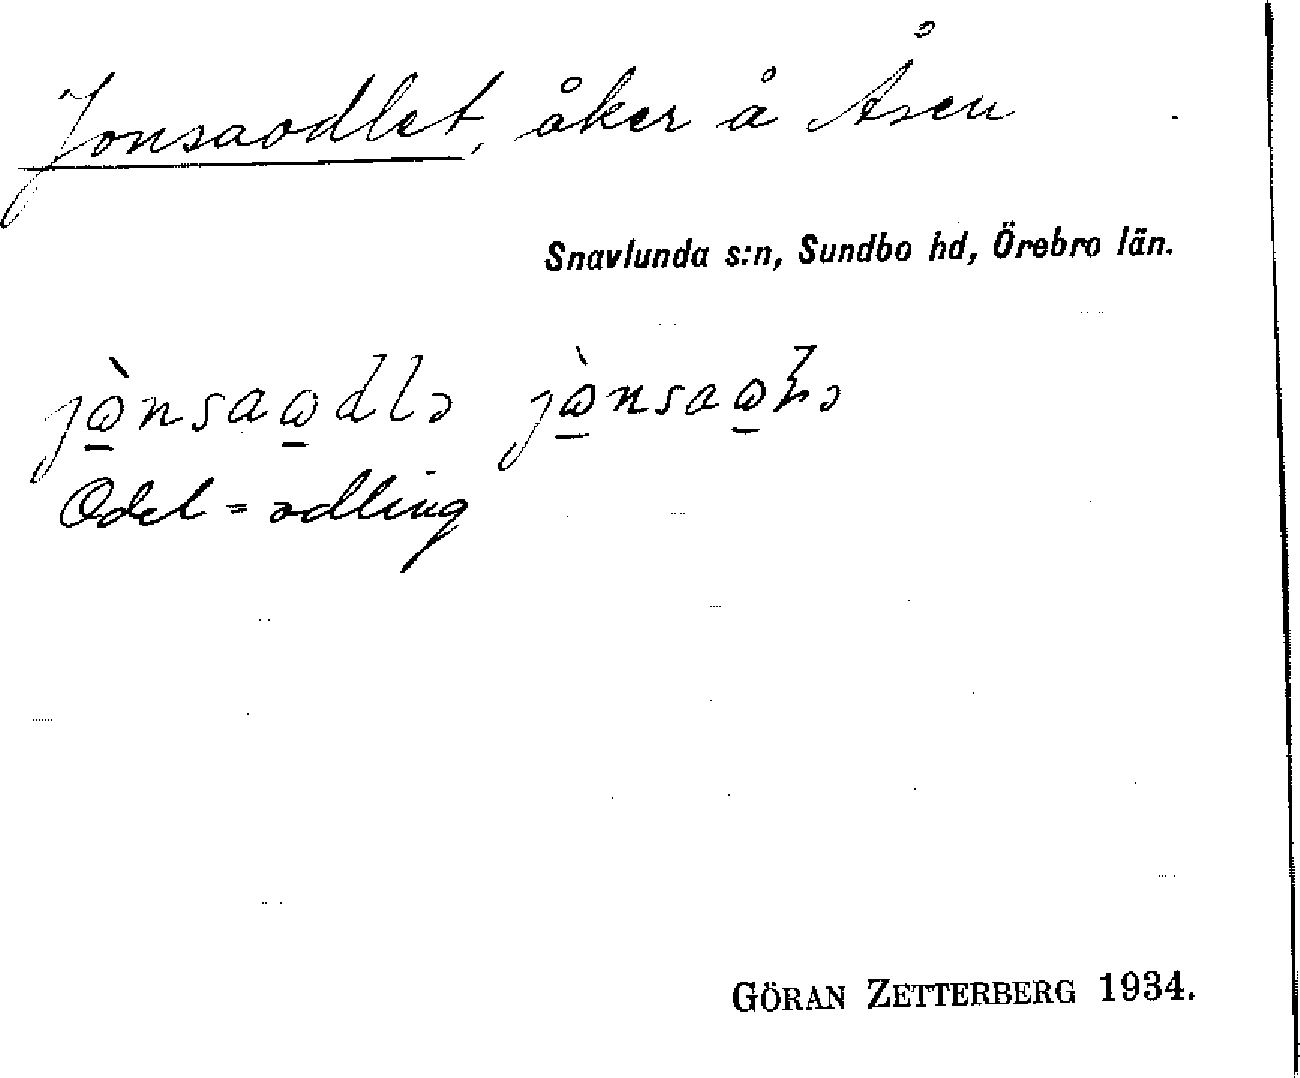 Jonsaodlet, åker å Åsen
Snavlunda s:n, Sundbo hd, Örebro län.
jὼ̲nsaω̲dlə
Odel = odling
GÖRAN ZETTERBERG 1934.